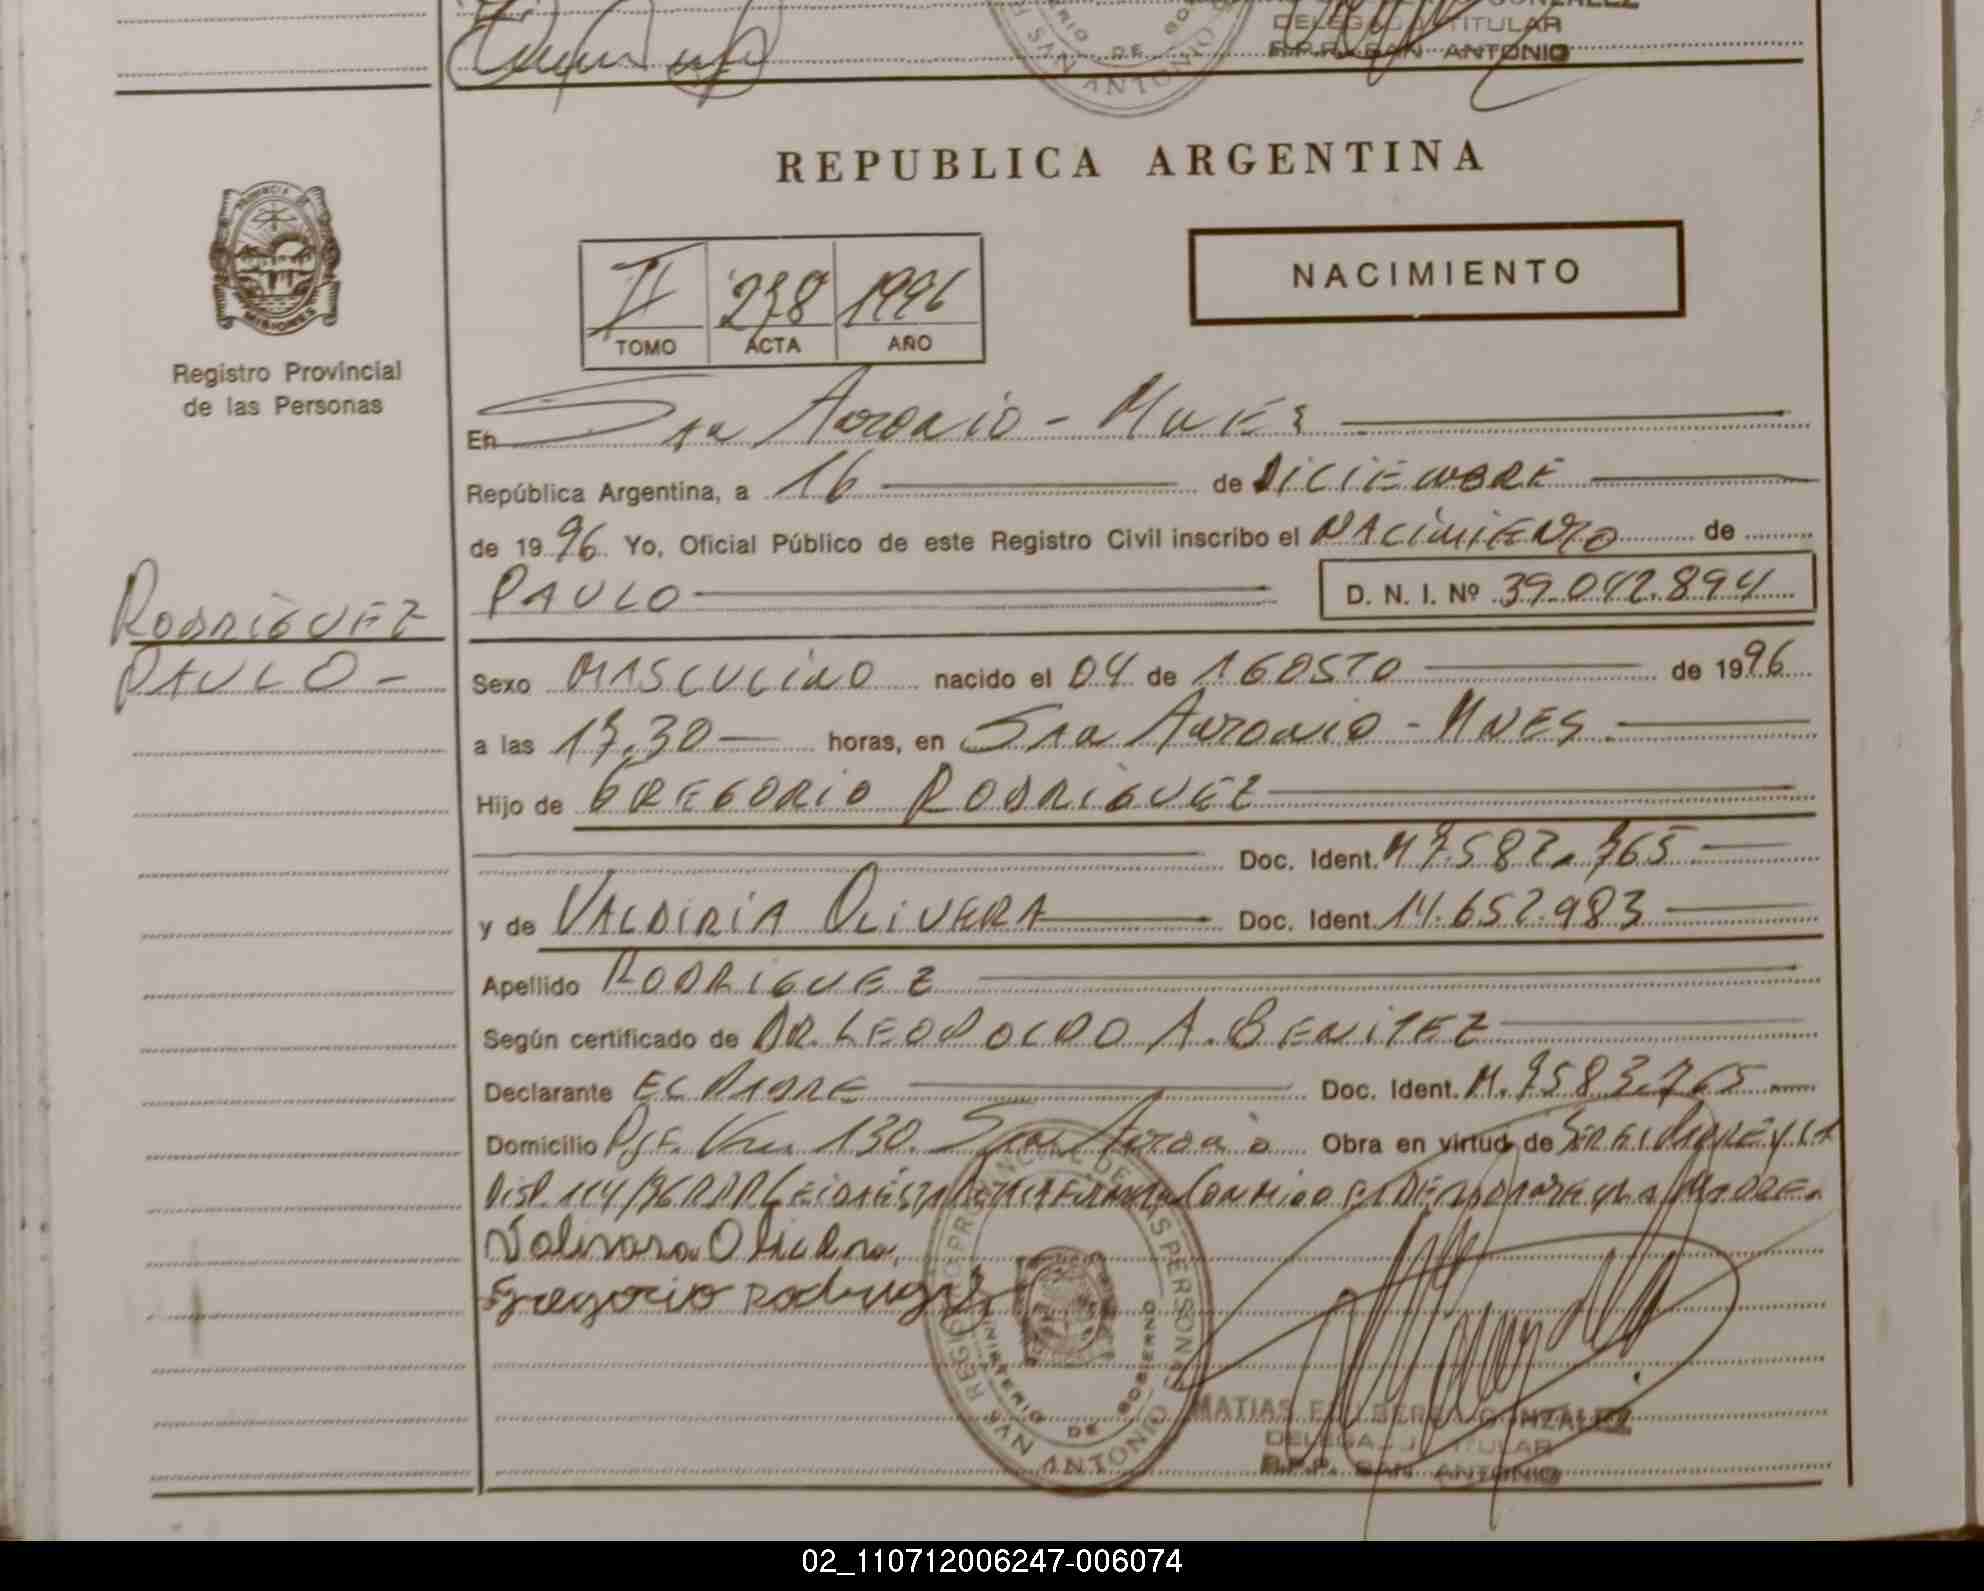 GONZALEZ
DELEGADO TITULAR
R.P.P. SAN ANTONIO
SAN ANTONIO
REPUBLICA ARGENTINA
PROVINCIA DE
MISIONES
NACIMIENTO
II 278 1996
TOMO ACTA AÑO
Registro Provincial
de las Personas
En San Antonio - Mnes
República Argentina, a 16 de DICIEMBRE
de 1996 Yo, Oficial Público de este Registro Civil inscribo el NACIMIENTO de
PAULO D. N. I. Nº 39.042.894
RODRIGUEZ
PAULO -
Sexo MASCULINO nacido el 04 de AGOSTO de 1996
a las 17,30 horas, en San Antonio - MNES.
Hijo de GREGORIO RODRIGUEZ
Doc. Ident. M 7582.765
y de VALDIRIA OLIVERA Doc. Ident. 14.652.983
Apellido RODRIGUEZ
Según certificado de DR. LEOPOLDO A. BENITEZ
Declarante EL PADRE Doc. Ident. M. 7583.765
Domicilio 130. San Antonio Obra en virtud de
Disp. 114/96 RPP
Gregorio Rodriguez
REGISTRO PROVINCIAL DE LAS PERSONAS
MINISTERIO DE GOBIERNO
SAN ANTONIO
MATIAS GONZALEZ
DELEGADO TITULAR
R.P.P. SAN ANTONIO
02_110712006247-006074